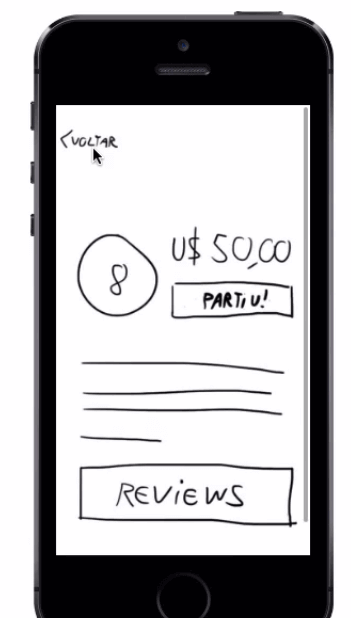 <VOLTAR
8
U$ 50,00
PARTIU!
REVIEWS